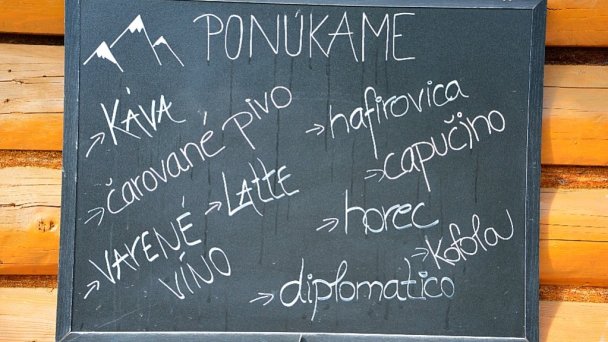 PONÚKAME
KÁVA
čarované pivo
LATTE
VARENÉ
VÍNO
hafirovica
capučino
horec
Kofola
diplomatico